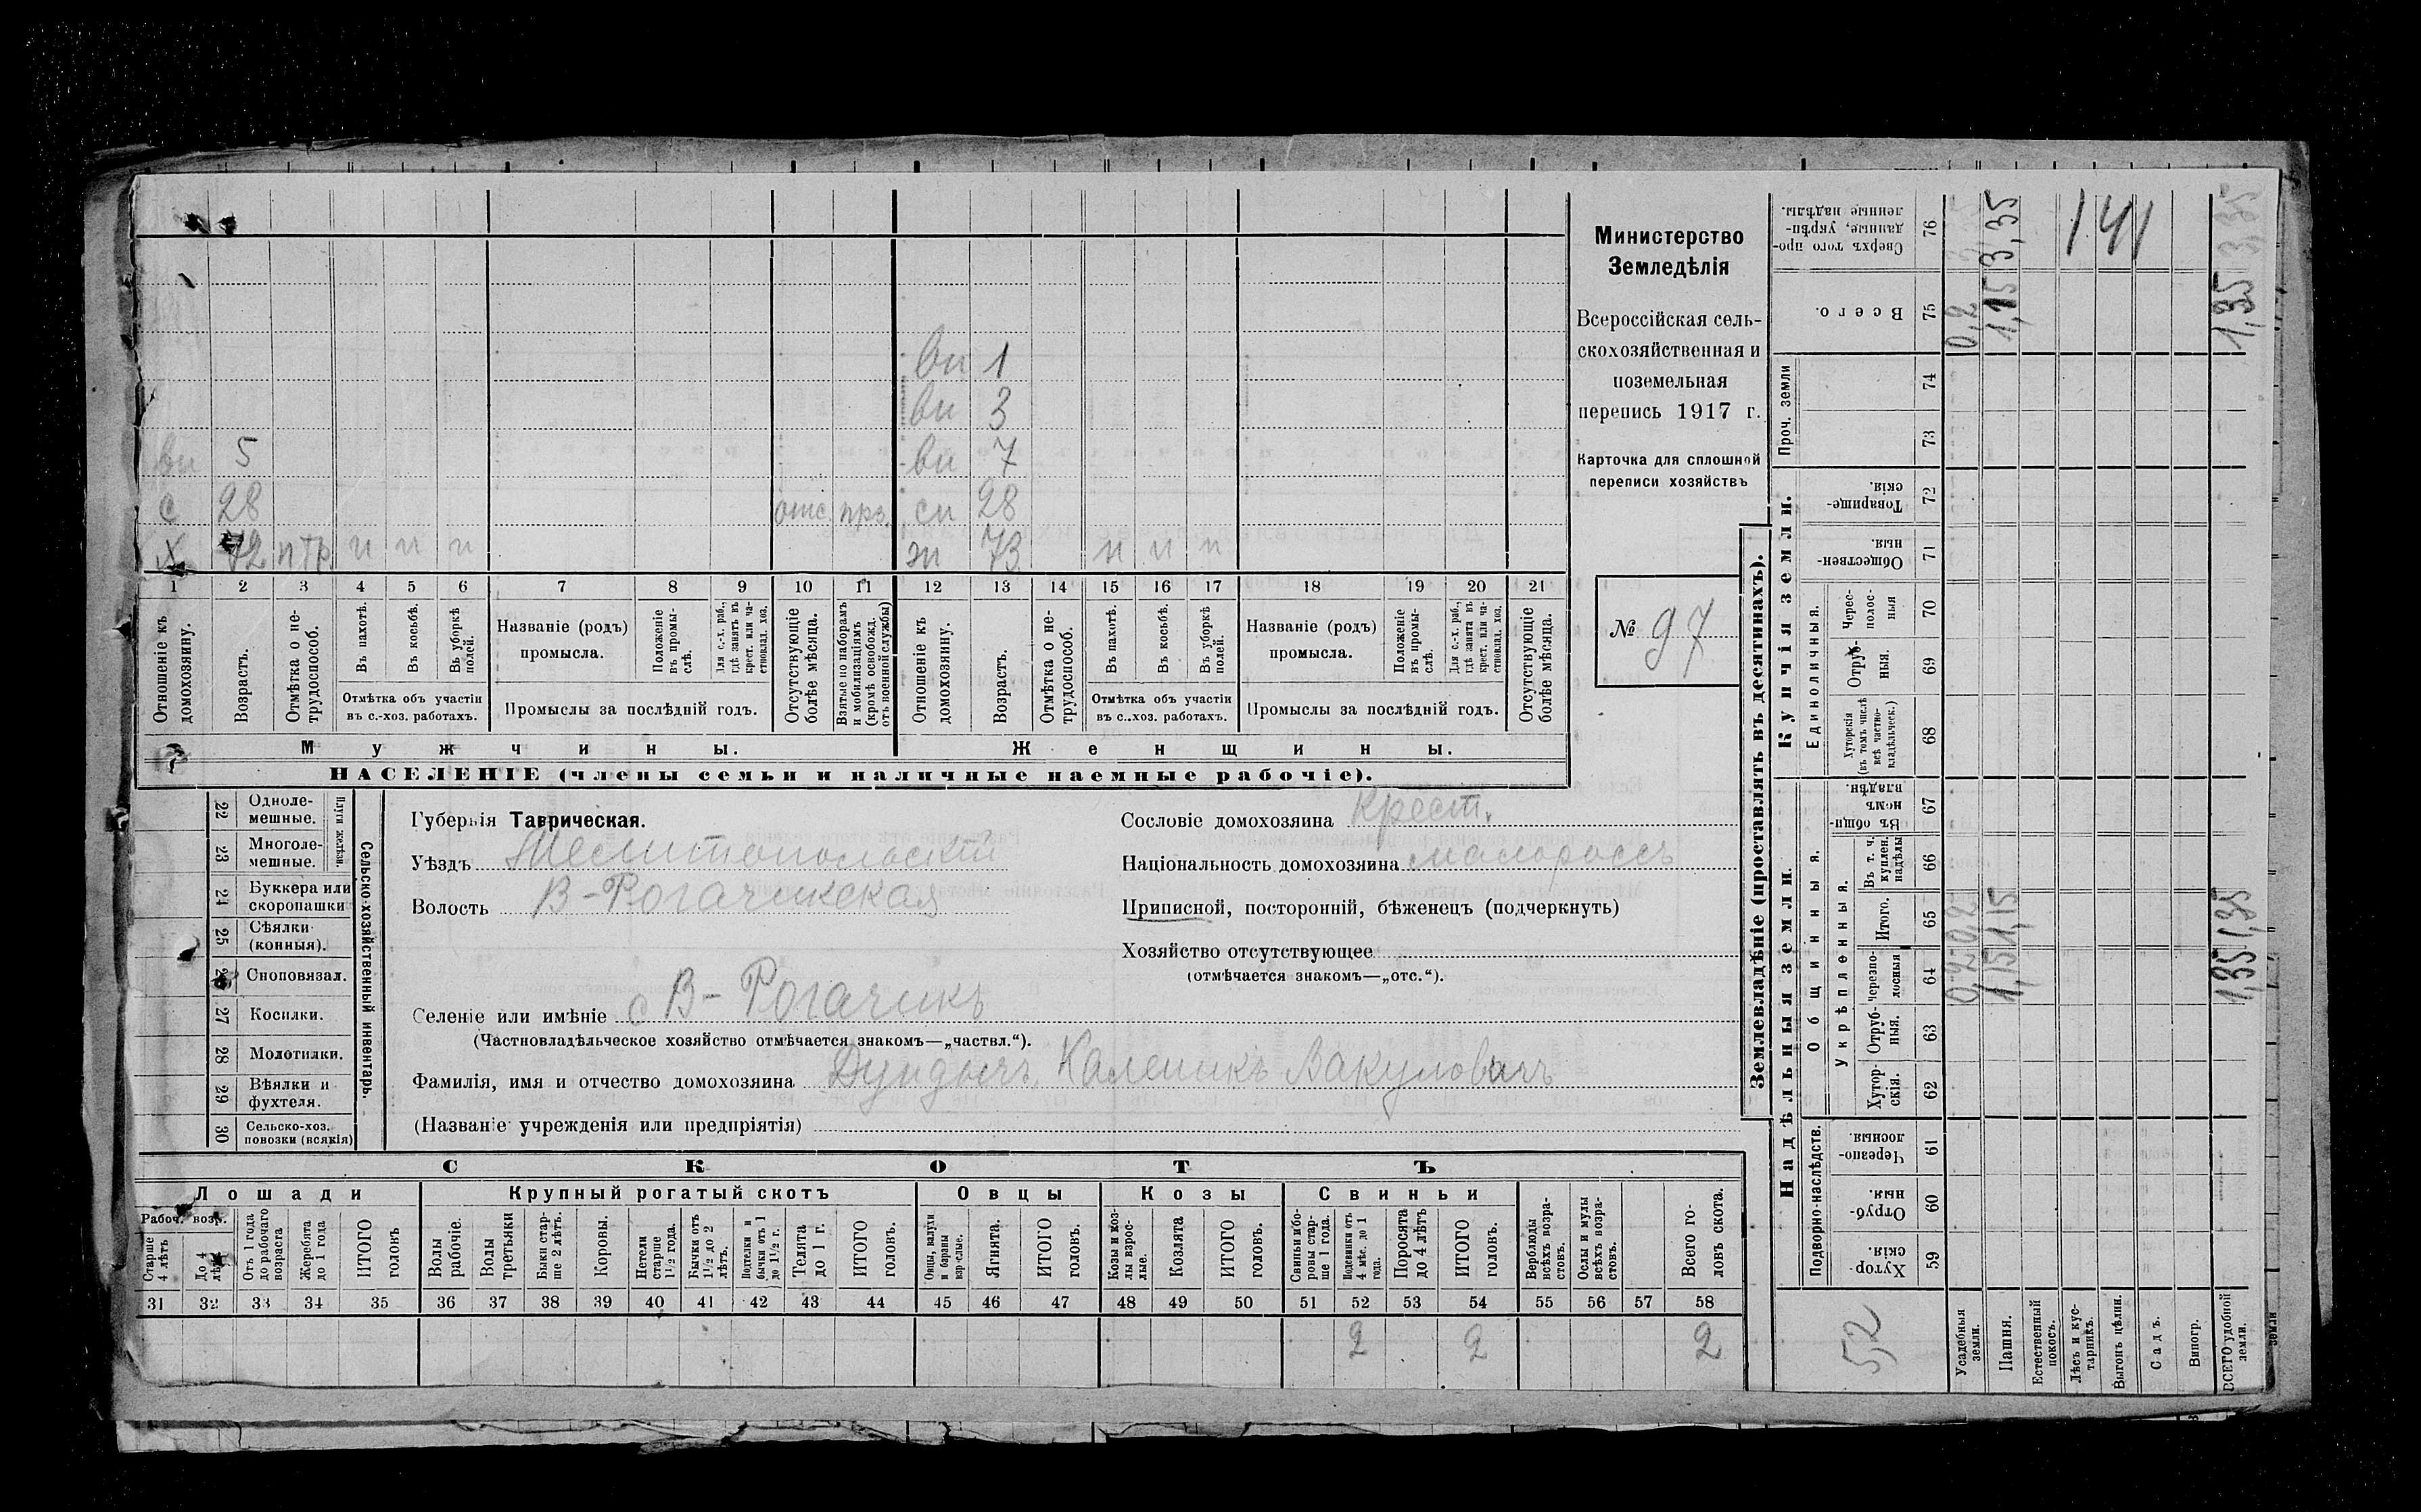 Министерство
Земледѣлія
Всероссійская сель-
скохозяйственная и
поземельная
перепись 1917 г.
Карточка для сплошной
переписи хозяйствъ
№ 97
вн 1
вн 3
вн 5 вн 7
с 28 отс. прз. сн 28
х 72 нтр. н н н ж 73 н н н
1 2 3 4 5 6 7 8 9 10 11 12 13 14 15 16 17 18 19 20 21
Отношеніе къ домохозяину.
Возрастъ.
Отмѣтка о не-трудоспособ.
Въ пахотѣ.
Въ косьбѣ.
Въ уборкѣ полей.
Отмѣтка объ участіи въ с.-хоз. работахъ.
Названіе (родъ) промысла.
Положеніе въ промы-слѣ.
Для с.-х. раб., гдѣ занятъ въ крест. или ча-стновлад. хоз.
Промыслы за послѣдній годъ.
Отсутствующіе болѣе мѣсяца.
Взятые по наборамъ и мобилизаціямъ (кромѣ освобожд. отъ военной службы)
Отношеніе къ домохозяину.
Возрастъ.
Отмѣтка о не-трудоспособ.
Въ пахотѣ.
Въ косьбѣ.
Въ уборкѣ полей.
Отмѣтка объ участіи въ с.-хоз. работахъ.
Названіе (родъ) промысла.
Положеніе въ промы-слѣ.
Для с.-х. раб., гдѣ занята въ крест. или ча-стновлад. хоз.
Промыслы за послѣдній годъ.
Отсутствующіе болѣе мѣсяца.
Мужчины. Женщины.
НАСЕЛЕНІЕ (члены семьи и наличные наемные рабочіе).
Сельско-хозяйственный инвентарь.
22 Одноле-мешные.
23 Многоле-мешные.
24 Буккера или скоропашки
25 Сѣялки (конныя).
26 Сноповязал.
27 Косилки.
28 Молотилки.
29 Вѣялки и фухтеля.
30 Сельско-хоз. повозки (всякія)
Губернія Таврическая.
Уѣздъ Мелитопольскій
Волость В-Рогачикская
Селеніе или имѣніе с В-Рогачикъ
(Частновладѣльческое хозяйство отмѣчается знакомъ—„частвл.“).
Фамилія, имя и отчество домохозяина Дундычъ Каленикъ Вакуловичъ
(Названіе учрежденія или предпріятія)
Сословіе домохозяина Крест.
Національность домохозяина малороссъ
Приписной, посторонній, бѣженецъ (подчеркнуть)
Хозяйство отсутствующее
(отмѣчается знакомъ—„отс.“).
СКОТЪ
Лошади Крупный рогатый скотъ Овцы Козы Свиньи
Рабоч. возр.
Старше 4 лѣтъ
До 4 лѣтъ
Отъ 1 года до рабочаго возраста
Жеребята до 1 года
ИТОГО головъ
Волы рабочіе.
Волы третьяки
Быки стар-ше 2 лѣтъ.
Коровы.
Нетели старше 1 1/2 года.
Бычки отъ 1 1/2 до 2 лѣтъ.
Подтелки и бычки отъ 1 до 1 1/2 г.
Телята до 1 г.
ИТОГО головъ.
Овцы, валухи и бараны взрослые.
Ягнята.
ИТОГО головъ.
Козы и коз-лы взрос-лые.
Козлята
ИТОГО головъ.
Свиньи и бо-ровы стар-ше 1 года.
Подсвинки отъ 4 мѣс. до 1 года.
Поросята до 4 лѣтъ
ИТОГО головъ.
Верблюды всѣхъ возра-стовъ.
Ослы и мулы всѣхъ возра-стовъ.
Всего го-ловъ скота.
31 32 33 34 35 36 37 38 39 40 41 42 43 44 45 46 47 48 49 50 51 52 53 54 55 56 57 58
2 2 2
Землевладѣніе (проставлять въ десятинахъ).
Надѣльныя земли. Купчія земли.
Подворно-наслѣдств.
Общинныя.
Укрѣпленныя.
Единоличныя.
Проч. земли
Хутор-скія. 59
Отруб-ныя. 60
Черезпо-лосныя. 61
Хутор-скія. 62
Отруб-ныя. 63
Черезпо-лосныя 64
Итого. 65
Въ т. ч. куплен. надѣлы 66
Въ общин-номъ владѣн. 67
Хуторскія (въ томъ числѣ всѣ частно-владѣльческ.) 68
Отруб-ныя. 69
Черес-полос-ныя 70
Обществен-ныя. 71
Товарище-скія. 72
73
74
Всего. 75
Сверхъ того про-данные, укрѣп-ленные надѣлы. 76
52
Усадебныя земли. 0,2 0,2 0,2
Пашня. 1,15 1,15 1,15 3,35
Естественный покосъ.
Лѣсъ и кус-тарникъ.
Выгонъ цѣлин.
Садъ.
Виногр.
ВСЕГО удобной земли. 1,35 1,35 1,35 3,35
141